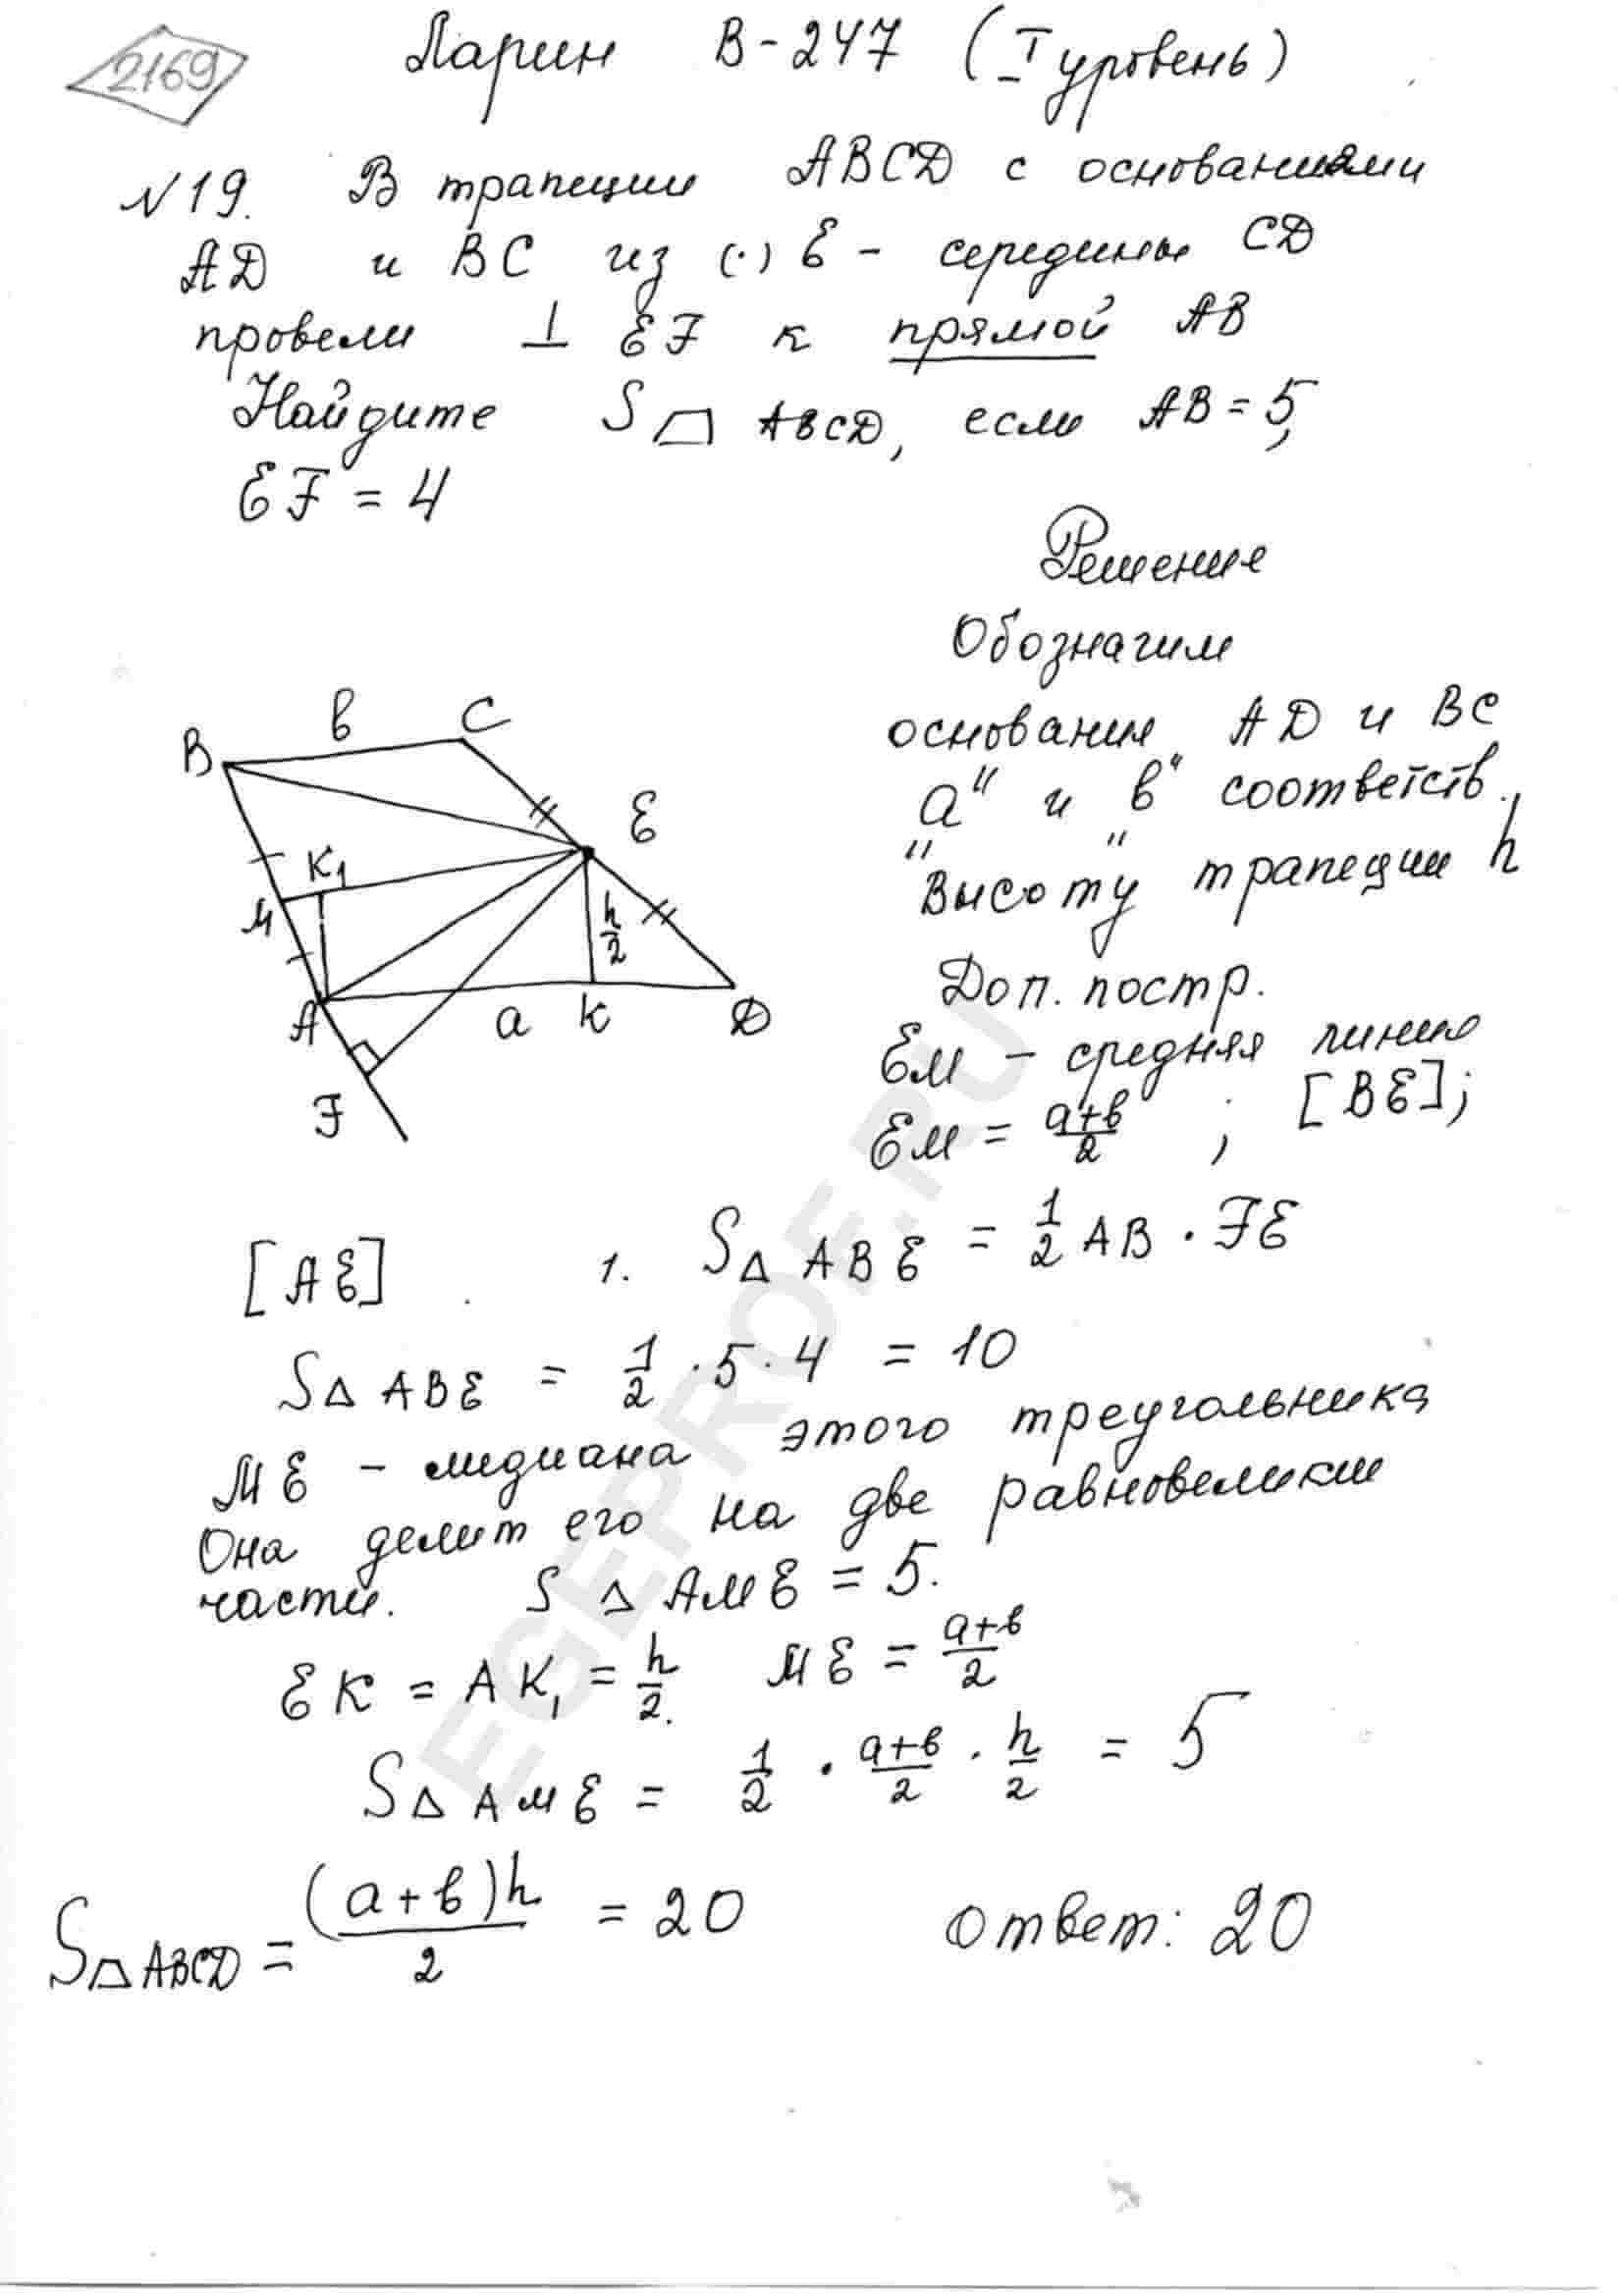 2169
Ларин В-247 (I уровень)
№19. В трапеции ABCD с основаниями
AD и BC из (·) E - середины CD
провели ⊥ EF к прямой AB
Найдите S ABCD, если AB = 5,
EF = 4
Решение
Обозначим
основания AD и BC
"a" и "в" соответств.
Высоту трапеции h
Доп. постр.
EM - средняя линия
EM = (a+в)/2 ; [BE];
B в C
E
K1
M
h/2
A a K D
F
[AE] 1. S△ABE = 1/2 AB · FE
S△ABE = 1/2 · 5 · 4 = 10
ME - медиана этого треугольника
Она делит его на две равновеликие
части. S△AME = 5.
EK = AK1 = h/2. ME = (a+в)/2
S△AME = 1/2 · (a+в)/2 · h/2 = 5
S ABCD = (a+в)h/2 = 20 Ответ: 20
EGEPROF.RU